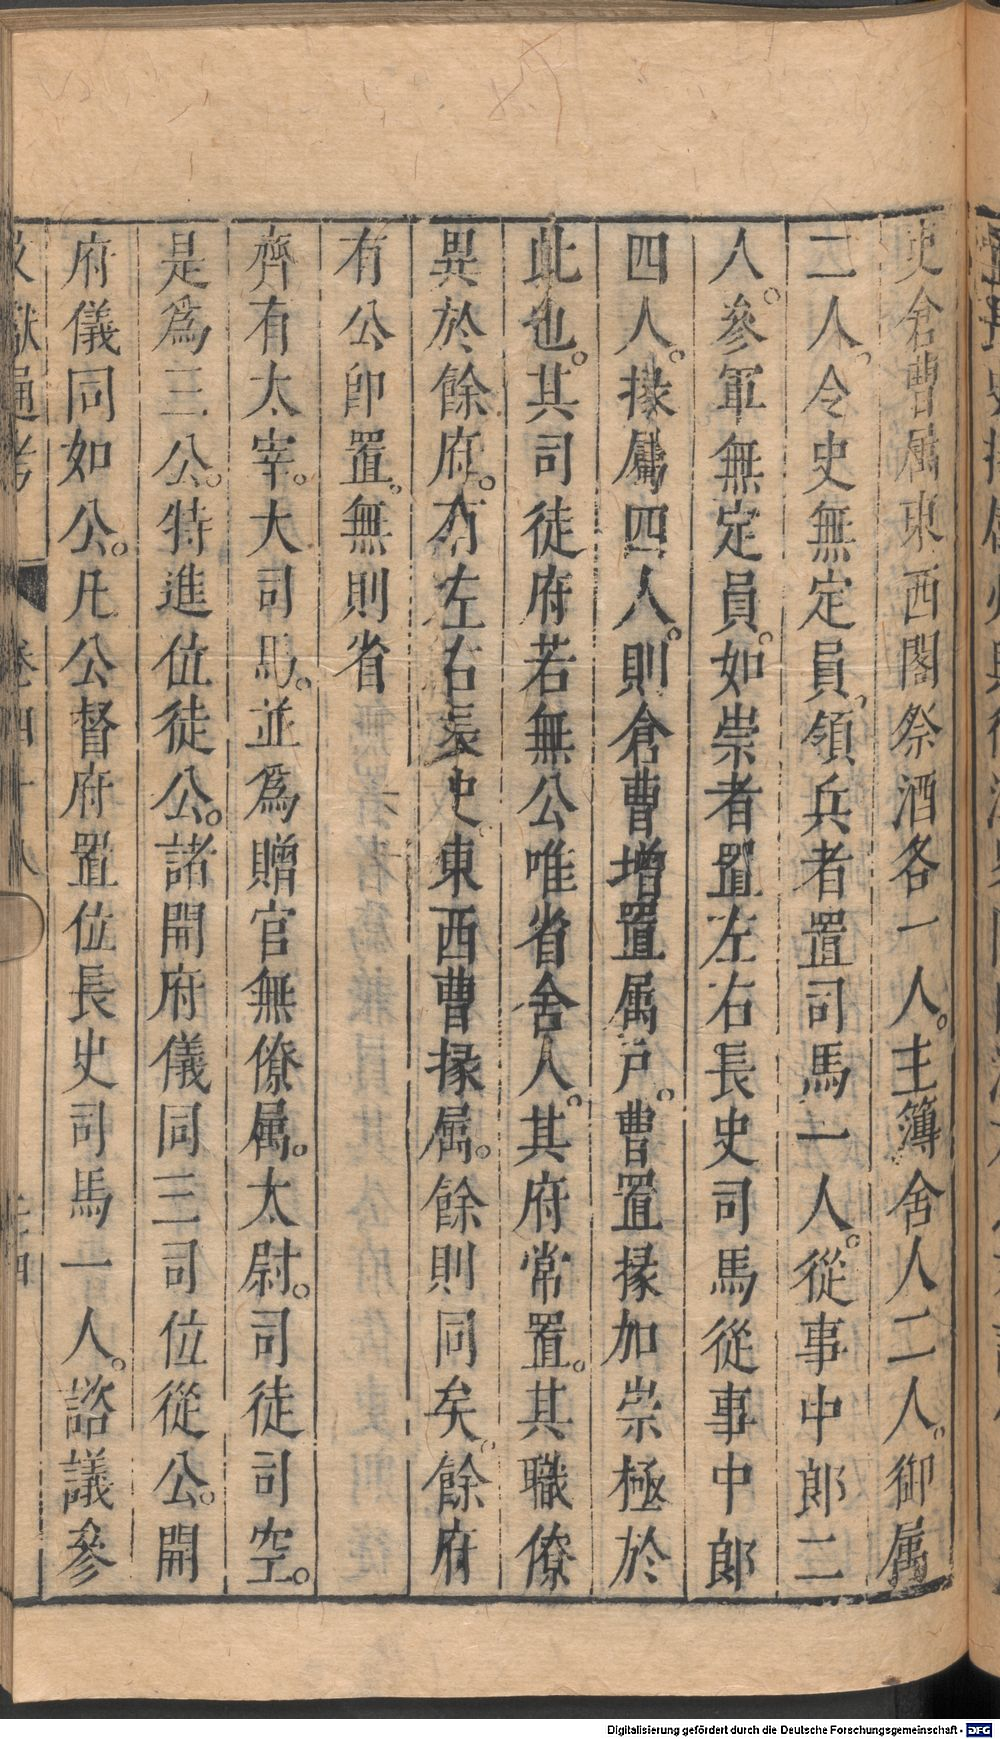 史倉曹属東西閤祭酒各一人。主簿舍人二人。御属
二人。令史無定員。領兵者置司馬一人。從事中郎二
人。參軍無定員。如崇者置左右長史司馬從事中郎
四人。掾屬四人。則倉曹增置属戸。曹置掾加崇極於
此也。其司徒府若無公唯省舍人。其府常置。其職僚
異於餘府。有左右長史。東西曹掾属。餘則同矣。餘府
有公卽置。無則省
齊有太宰。大司馬。並爲贈官無僚属。太尉。司徒司空。
是爲三公。特進位徒公。諸開府儀同三司位從公。開
府儀同如公。凡公督府置位長史司馬一人。諮議參
文獻通考 卷四十八
Digitalisierung gefördert durch die Deutsche Forschungsgemeinschaft - DFG